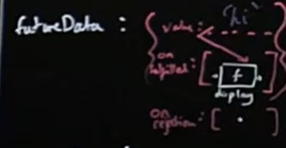 futureData : { value: "hi"
on
fulfilled: [ f ]
display
on
rejection: [ ]